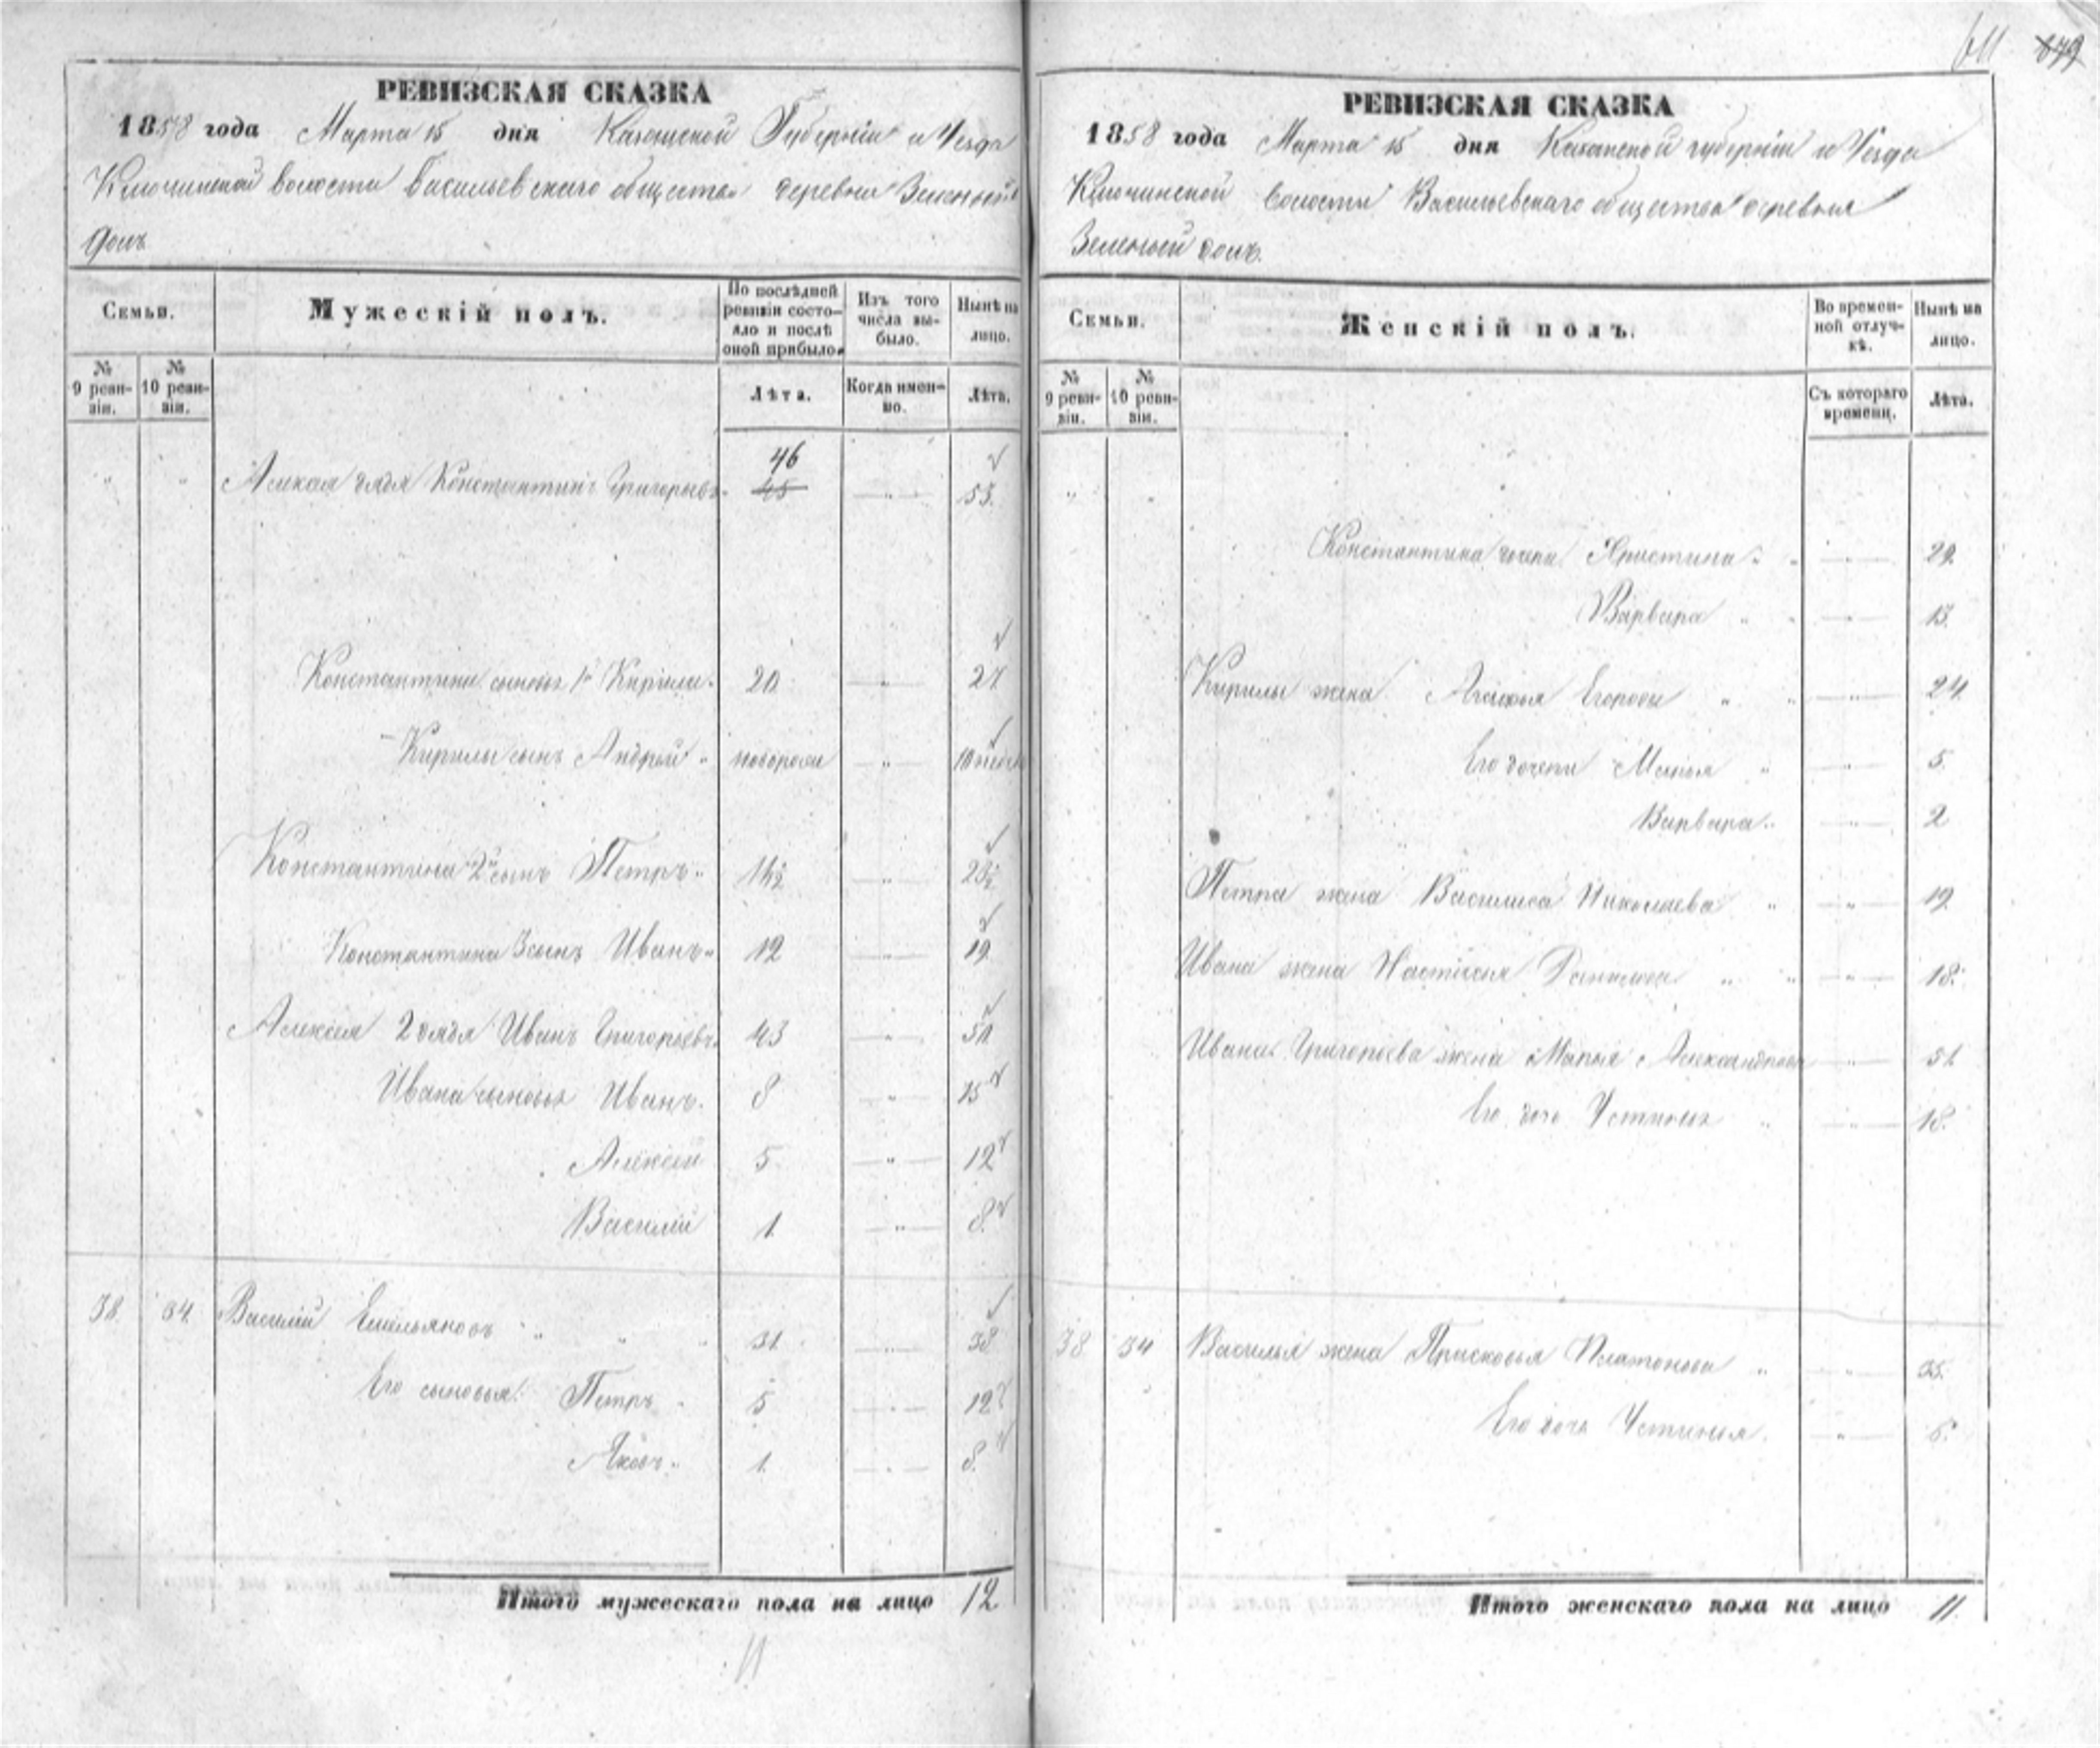 611 679
РЕВИЗСКАЯ СКАЗКА
1858 года Марта 15 дня Казанской Губерніи и Уезда
Ключинской волости Васильевскаго общества деревни Зеленый
Долъ
Семьи.
Мужескій полъ.
По послѣдней ревизіи состояло и послѣ оной прибыло.
Изъ того числа выбыло.
Нынѣ на лицо.
№ 9 ревизіи.
№ 10 ревизіи.
Лѣта.
Когда именно.
Лѣта.
" " Алексея дядя Константинъ Григорьевъ 46 45 " 53.
Константина сыновья 1й Кирила 20 " 27
Кирилы сынъ Андрей " новорожд " 10
Константина 2й сынъ Петръ " "
Константина 3 сынъ Иванъ " 12 " 19
Алексея 2 дядя Иванъ Григорьевъ 43 " 50
Ивана сыновья Иванъ. 8 " 15
Алексей 5 " 12
Василій 1 " 8
38 34 Василій Емельяновъ " " " 31 " 38
Его сыновья: Петръ 5 " 12
Яковъ " 1. " 8.
Итого мужескаго пола на лицо 12
11
РЕВИЗСКАЯ СКАЗКА
1858 года Марта 15 дня Казанской губерніи и Уезда
Ключинской волости Васильевскаго общества деревня
Зеленый долъ.
Семьи.
Женскій полъ.
Во временной отлучкѣ.
Нынѣ на лицо.
№ 9 ревизіи.
№ 10 ревизіи.
Съ котораго времени.
Лѣта.
" "
Константина дочери Христина " " " 29.
Варвара " " " 13.
Кирилы жена Агафья Егорова " " " 24
Его дочери Марья " " 5.
Варвара " " 2
Петра жена Василиса Николаева " " 19.
Ивана жена Настасья Данилова " " " 18.
Ивана Григорьева жена Марья Александрова " 51
Его дочь Устинья " " 18.
38 34 Василья жена Прасковья Платонова " " 35.
Его дочь Устинья. " 6.
Итого женскаго пола на лицо 11.